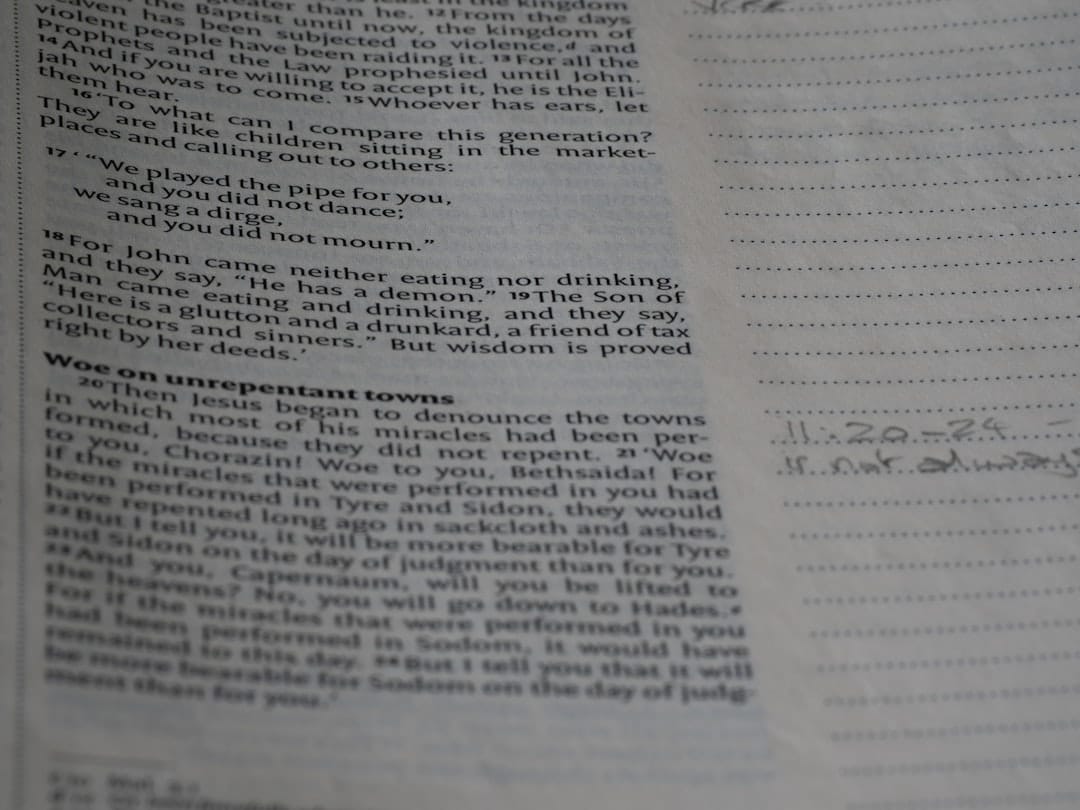 than he. 12 From the days
the Baptist until now, the kingdom of
has been subjected to violence,d and
violent people have been raiding it. 13 For all the
Prophets and the Law prophesied until John.
14 And if you are willing to accept it, he is the Eli-
jah who was to come. 15 Whoever has ears, let
them hear.
16 ‘To what can I compare this generation?
They are like children sitting in the market-
places and calling out to others:
17 ‘ “We played the pipe for you,
and you did not dance;
we sang a dirge,
and you did not mourn.”
18 For John came neither eating nor drinking,
and they say, “He has a demon.” 19 The Son of
Man came eating and drinking, and they say,
“Here is a glutton and a drunkard, a friend of tax
collectors and sinners.” But wisdom is proved
right by her deeds.’
Woe on unrepentant towns
20 Then Jesus began to denounce the towns
in which most of his miracles had been per-
formed, because they did not repent. 21 ‘Woe
to you, Chorazin! Woe to you, Bethsaida! For
if the miracles that were performed in you had
been performed in Tyre and Sidon, they would
have repented long ago in sackcloth and ashes.
22 But I tell you, it will be more bearable for Tyre
and Sidon on the day of judgment than for you.
23 And you, Capernaum, will you be lifted to
the heavens? No, you will go down to Hades.e
For if the miracles that were performed in you
had been performed in Sodom, it would have
remained to this day. 24 But I tell you that it will
be more bearable for Sodom on the day of judg-
ment than for you.’
11:20-24 -
is not always